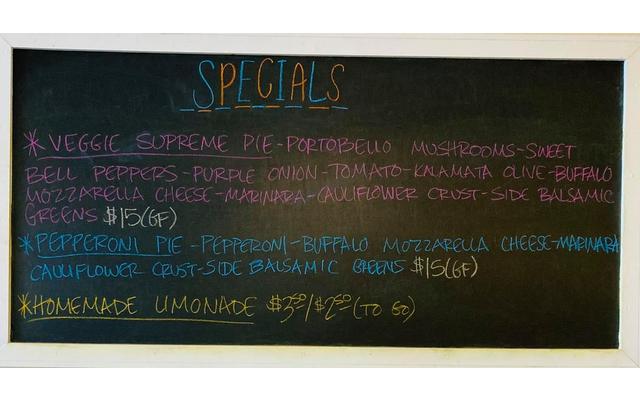 SPECIALS
* VEGGIE SUPREME PIE-PORTOBELLO MUSHROOMS-SWEET
BELL PEPPERS-PURPLE ONION-TOMATO-KALAMATA OLIVE-BUFFALO
MOZZARELLA CHEESE-MARINARA-CAULIFLOWER CRUST-SIDE BALSAMIC
GREENS $15(GF)
* PEPPERONI PIE-PEPPERONI-BUFFALO MOZZARELLA CHEESE-MARINARA
CAULIFLOWER CRUST-SIDE BALSAMIC GREENS $15(GF)
* HOMEMADE LIMONADE $3.50/$2.50 (TO GO)